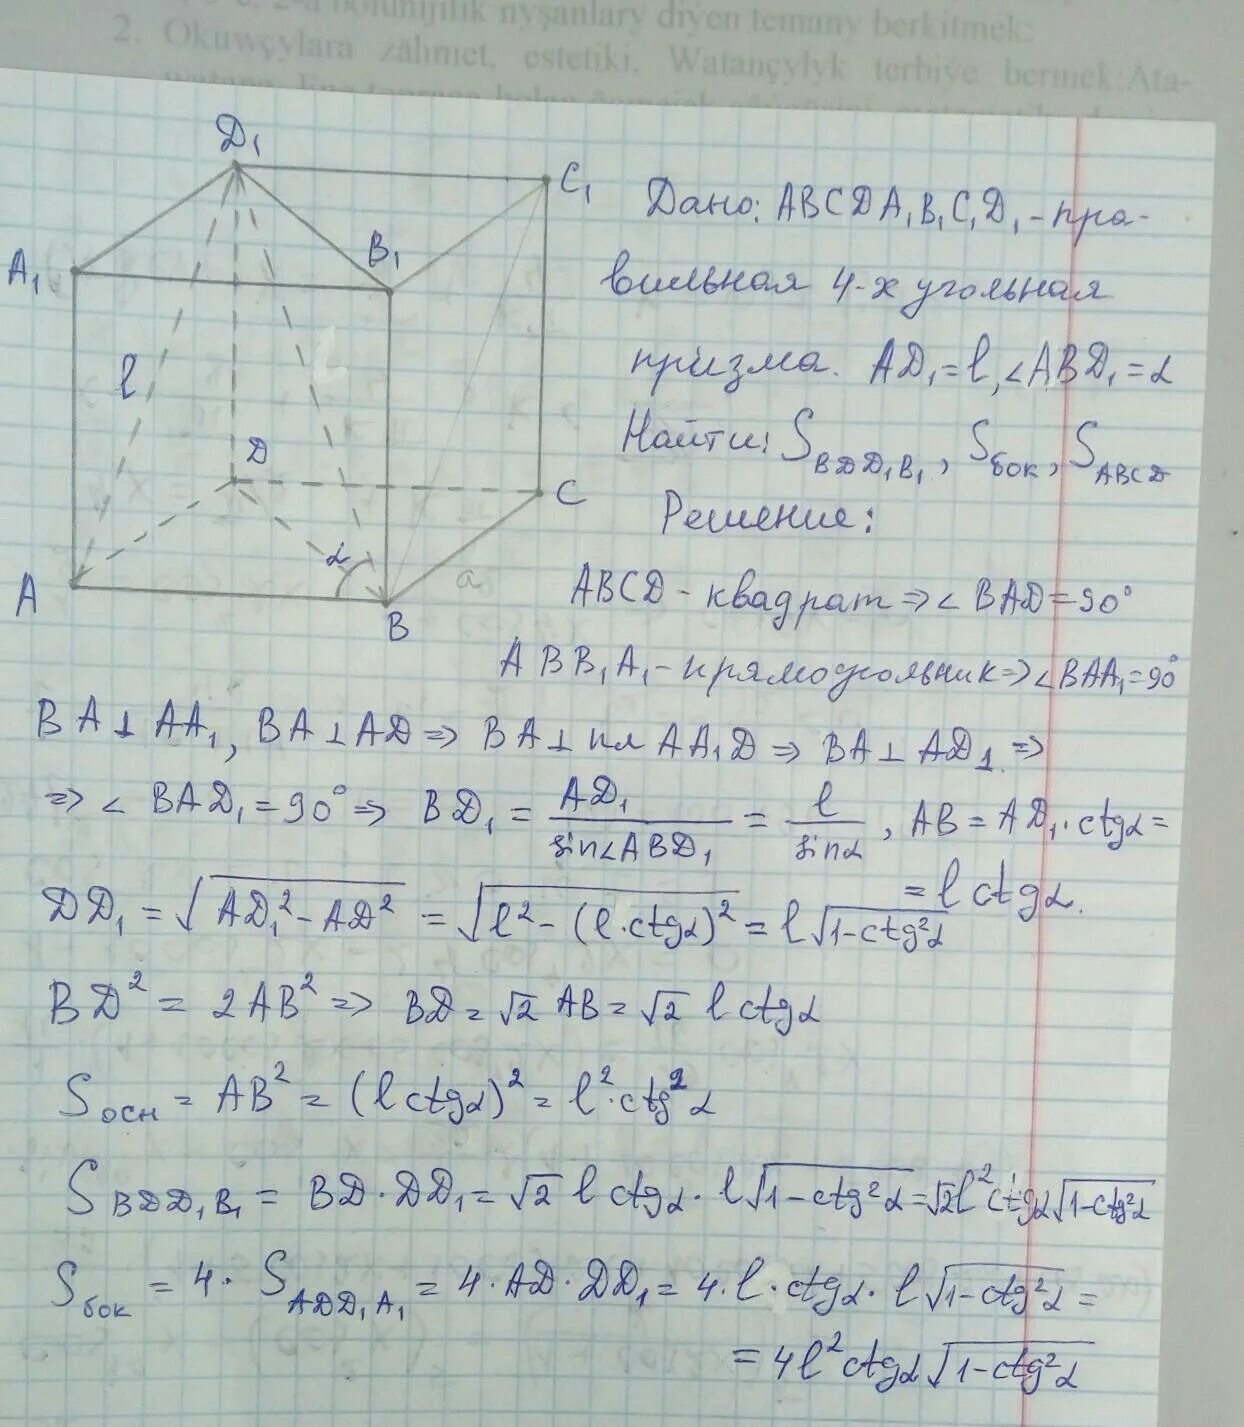 2-a bölünijilik nyşanlary diýen temany berkitmek;
2. Okuwçylara zähmet, estetiki, Watançylyk terbiýe bermek: Ata-
D₁
C₁
A₁
B₁
l
D
C
α
a
A
B
Дано: ABCDA₁B₁C₁D₁ - пра-
вильная 4-х угольная
призма. AD₁ = l, ∠ABD₁ = α
Найти: S_BDD₁B₁, S_бок, S_ABCD
Решение:
ABCD - квадрат ⇒ ∠BAD = 90°
ABB₁A₁ - прямоугольник ⇒ ∠BAA₁ = 90°
BA ⊥ AA₁, BA ⊥ AD ⇒ BA ⊥ пл AA₁D ⇒ BA ⊥ AD₁ ⇒
⇒ ∠BAD₁ = 90° ⇒ BD₁ = AD₁ / sin∠ABD₁ = l / sinα, AB = AD₁ · ctgα =
= l ctgα.
DD₁ = √(AD₁² - AD²) = √(l² - (l·ctgα)²) = l√(1-ctg²α)
BD² = 2AB² ⇒ BD = √2 AB = √2 l ctgα
S_осн = AB² = (l ctgα)² = l²·ctg²α
S_BDD₁B₁ = BD · DD₁ = √2 l ctgα · l√(1-ctg²α) = √2 l² ctgα√(1-ctg²α)
S_бок = 4 · S_ADD₁A₁ = 4 · AD · DD₁ = 4 · l · ctgα · l√(1-ctg²α) =
= 4l² ctgα√(1-ctg²α)